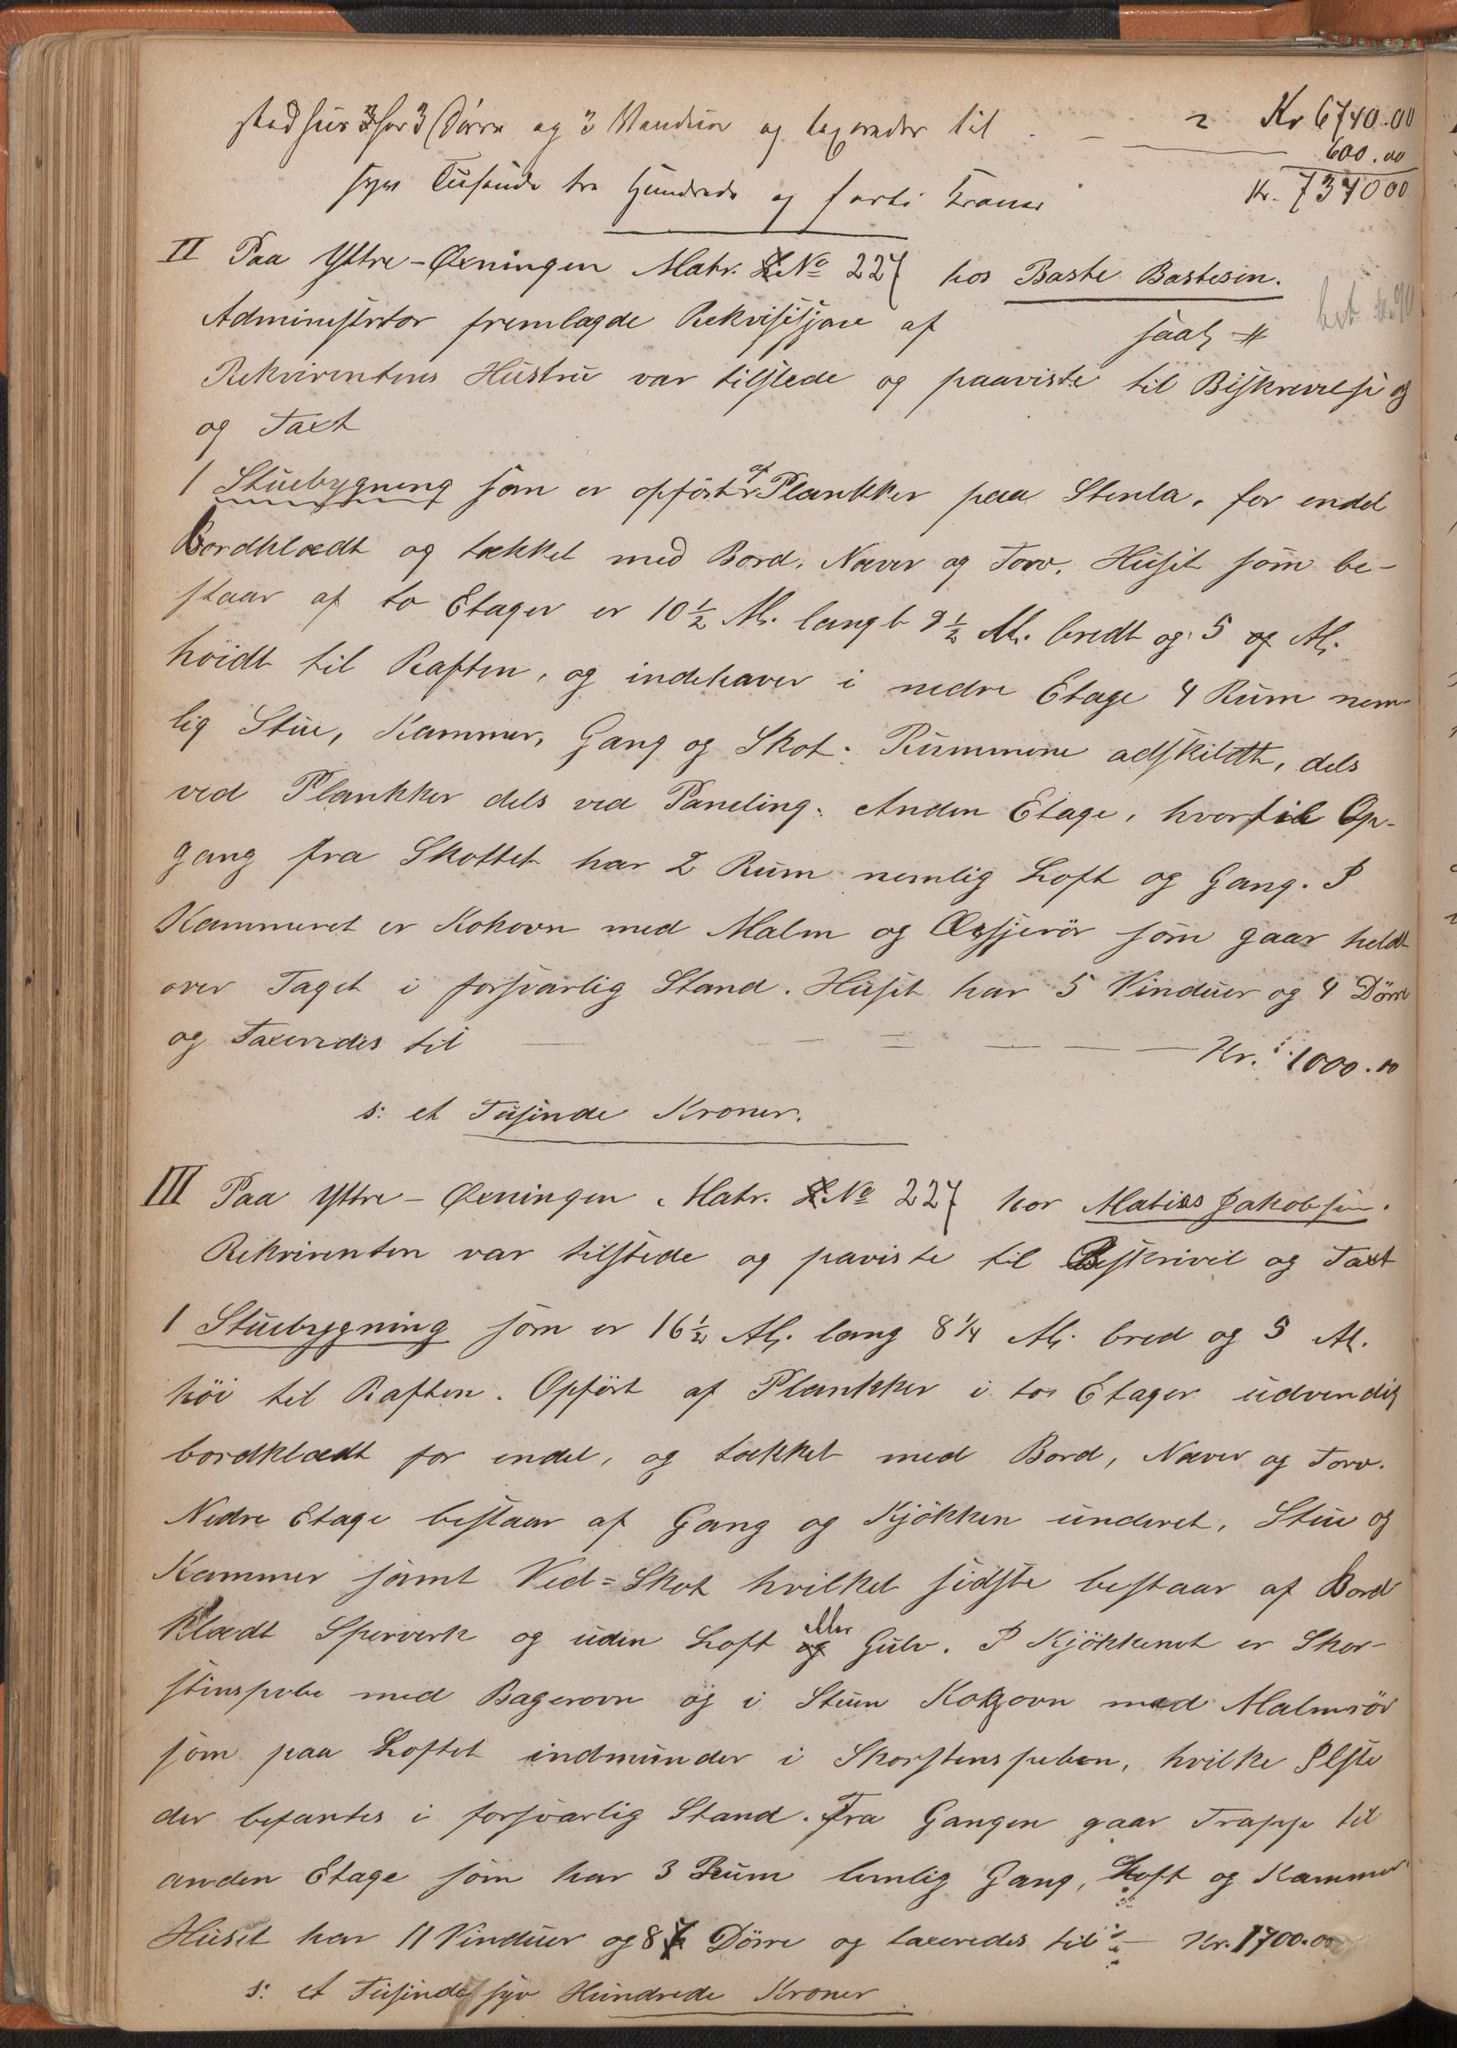 stadhus har 3 Dörre og 3 Vinduer og taxerades til - — 2 Kr 6740.00
600.00
syv Tusinde tre Hundrede og forti Kroner Kr. 7340 00
II Paa Yttre-Øxningen Matr. No 227 hos Baste Bastesen.
Administrtor fremlagde Rekvisisjone af saal #
Rekvirentens Hustru var tilstede og paaviste til Biskrevelse og
og Taxt
1 Stuebygning som er opført af Plankker paa Stenla, for endel
Bordklædt og tækket med Bord, Næver og Torv. Huset som be-
staar af to Etager er 10 1/2 Al. langt 9 1/2 Al. bredt og 5 Al.
höidt til Raften, og indehaver i nedre Etage 4 Rum nem-
lig Stue, Kammer, Gang og Skot. Rummene adskildt, dels
ved Plankker dels ved Paneling. Anden Etage, hvortil Op-
gang fra Skottet har 2 Rum nemlig Loft og Gang. I
Kammeret er Kokovn med Malm og rör som gaar heldt
over Taget i forsvarlig Stand. Huset har 5 Vinduer og 4 Dörre
og Taxeredes til — — = — — — Kr. 1000.00
s: et Tusinde Kroner.
III Paa Yttre-Øxningen Matr. No 227 hos Matias Jakobsen.
Rekvirenten var tilstede og paviste til Beskrivel og Taxt
1 Stuebygning som er 16 1/2 Al. lang 8 1/4 Al. bred og 5 Al.
höi til Raften. Opfört af Plankker i to Etager udvendig
bordklædt for endel, og tækket med Bord, Næver og Torv.
Nedre Etage bestaar af Gang og Kjökken underet, Stue og
Kammer samt Ved=Skot hvilket sidste bestaar af Bord
klædt Sperverk og uden Loft eller Gulv. I Kjökkenet er Skor-
stenspibe med Bagerovn og i Stuen Kokovn med Malmrör
som paa Loftet indmunder i Skorstenspeben, hvilke Ilste
der befantes i forsvarlig Stand. Fra Gangen gaar Trappe til
anden Etage som har 3 Rum lemlig Gang, Loft og Kammer
Huset har 11 Vinduer og 8 Dörre og taxeredes til — Kr. 1700.00
s: et Tusinde syv Hundrede Kroner.